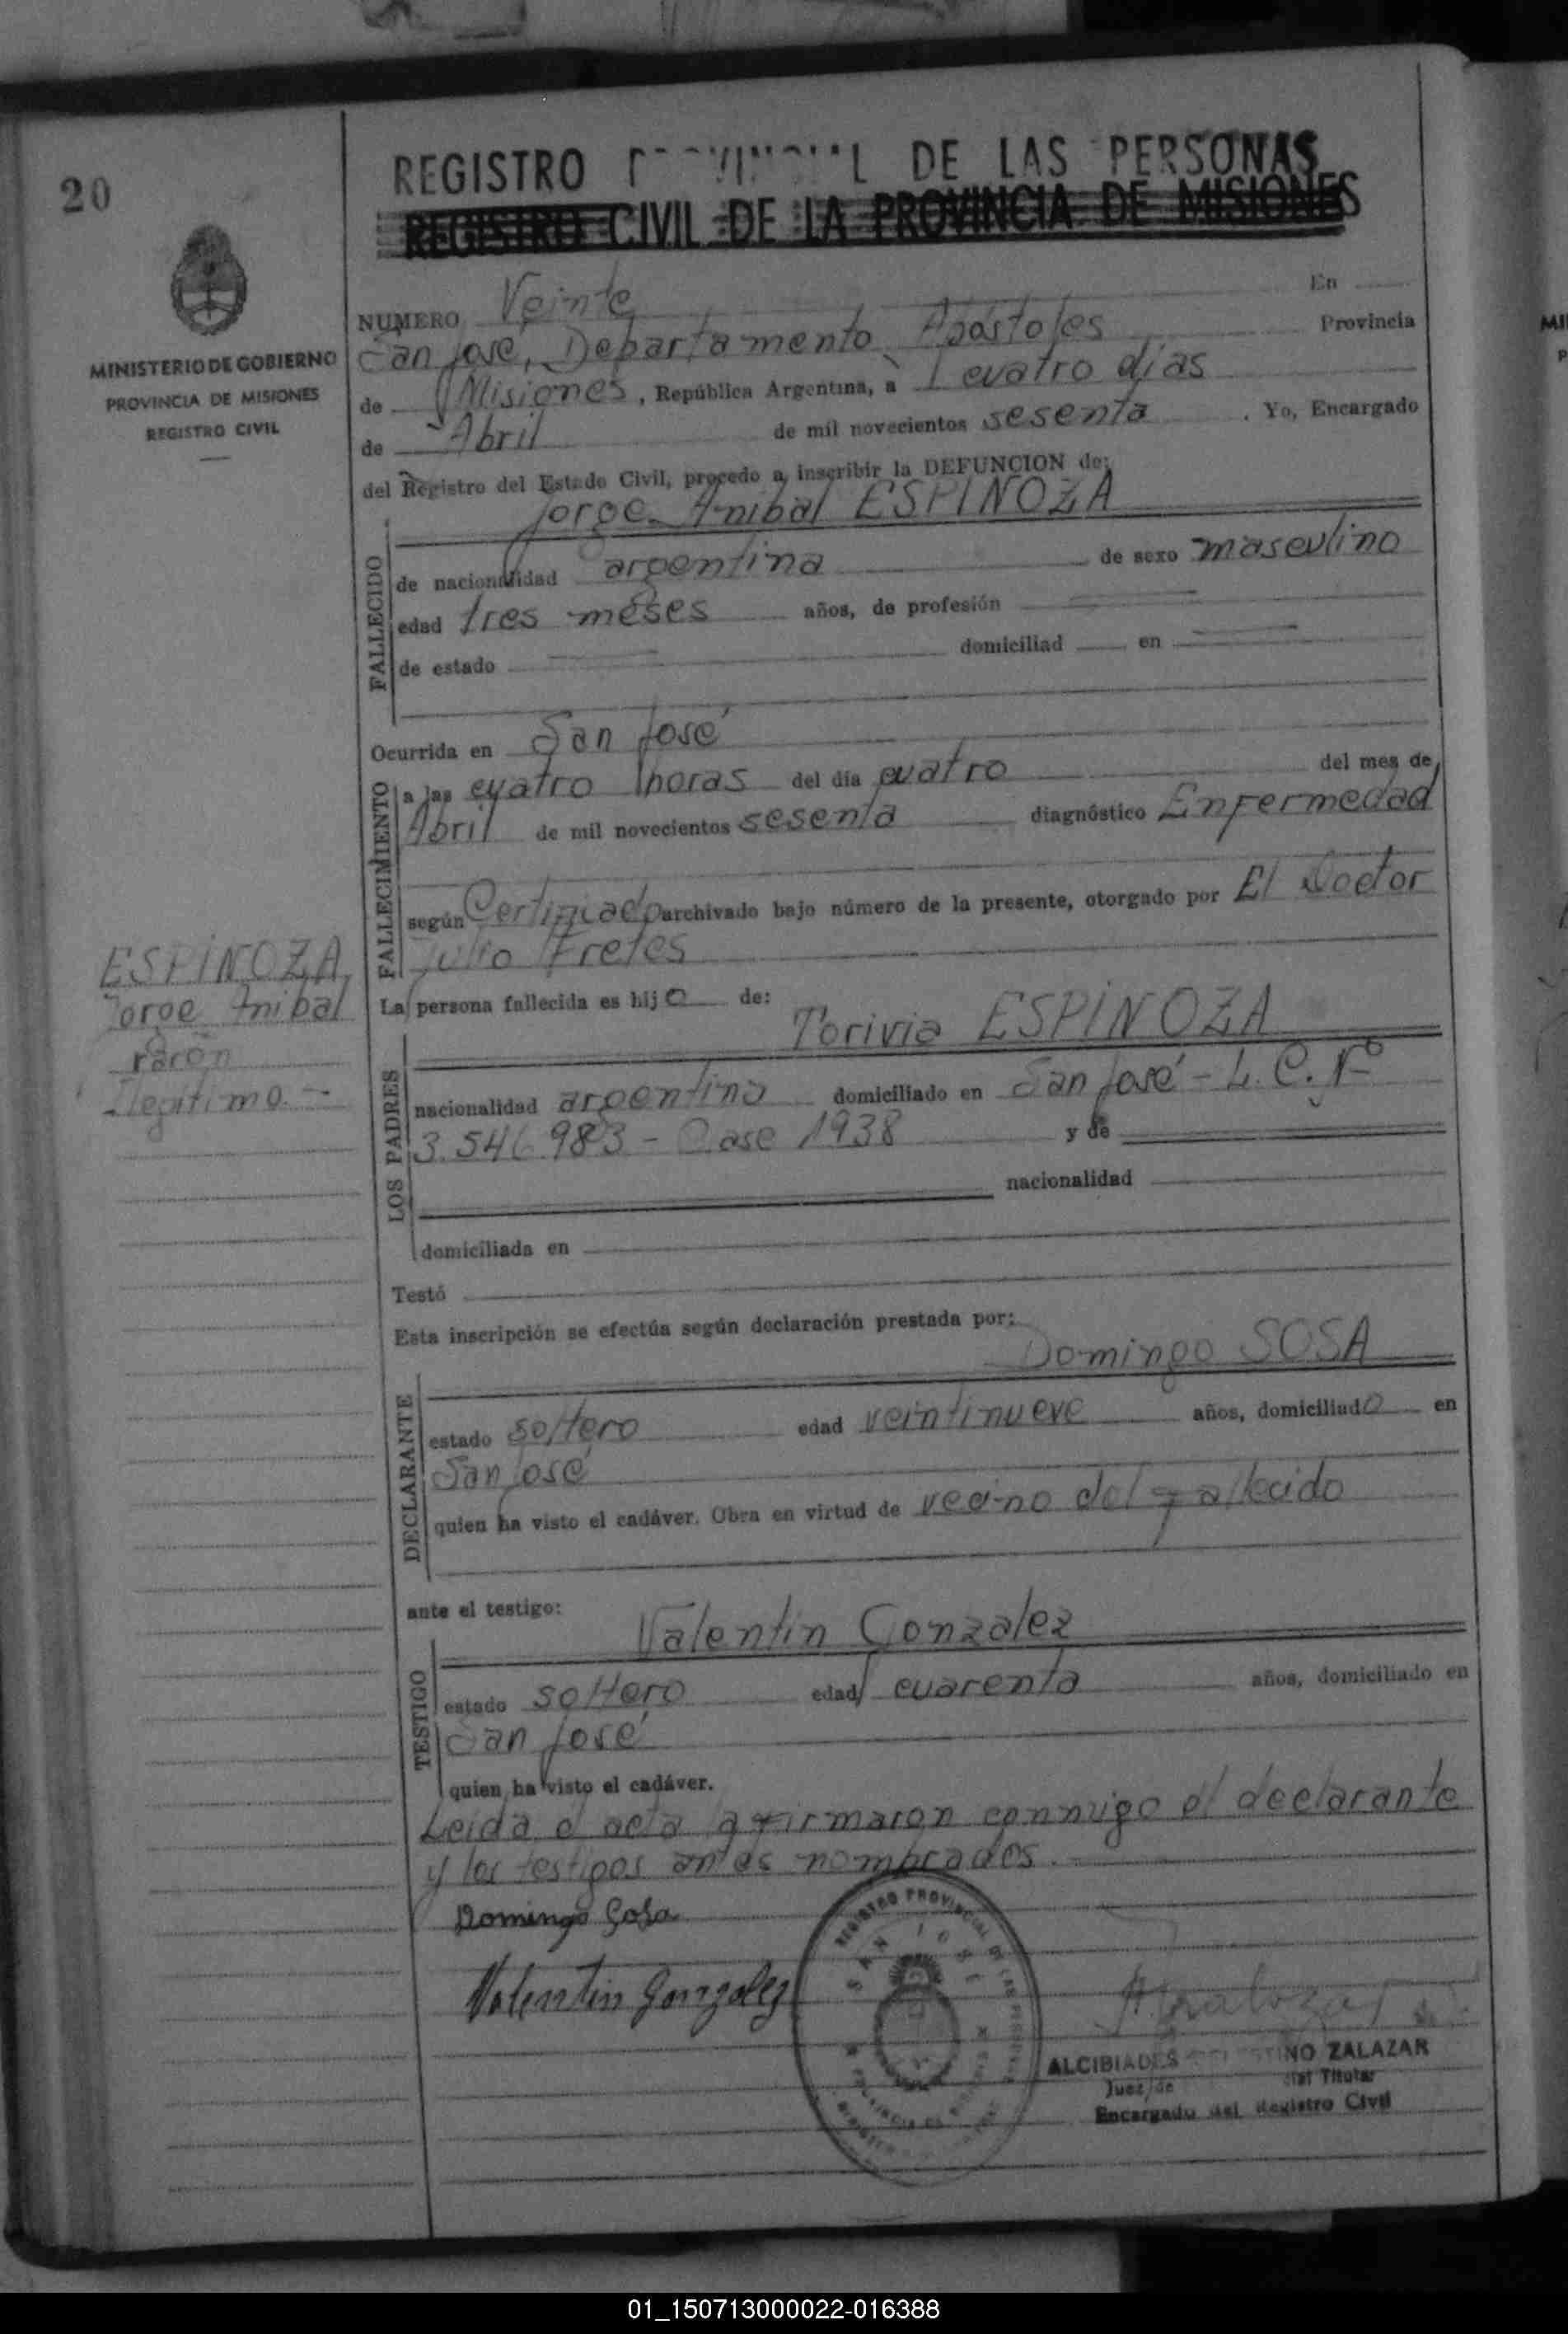 20
MINISTERIO DE GOBIERNO
PROVINCIA DE MISIONES
REGISTRO CIVIL
REGISTRO DE LAS PERSONAS
REGISTRO CIVIL DE LA PROVINCIA DE MISIONES
NUMERO Veinte En
San José, Departamento Apóstoles Provincia
de Misiones, República Argentina, a cuatro días
de Abril de mil novecientos sesenta. Yo, Encargado
del Registro del Estado Civil, procedo a inscribir la DEFUNCION de:
Jorge Anibal ESPINOZA
FALLECIDO
de nacionalidad argentina de sexo masculino
edad tres meses años, de profesión
de estado domiciliad en
Ocurrida en San José
FALLECIMIENTO
a las cuatro horas del día cuatro del mes de
Abril de mil novecientos sesenta diagnóstico Enfermedad
según Certificado archivado bajo número de la presente, otorgado por El Doctor
Julio Fretes
ESPINOZA
Jorge Anibal
Ilegitimo.-
La persona fallecida es hijo de:
Torivia ESPINOZA
LOS PADRES
nacionalidad argentina domiciliado en San José - L. C. Nº
3.546.983 - Clase 1938 y de
nacionalidad
domiciliada en
Testó
Esta inscripción se efectúa según declaración prestada por:
Domingo SOSA
DECLARANTE
estado soltero edad veintinueve años, domiciliado en
San José
quien ha visto el cadáver. Obra en virtud de vecino del fallecido
ante el testigo:
Valentin Gonzalez
TESTIGO
estado soltero edad cuarenta años, domiciliado en
San José
quien ha visto el cadáver.
Leida el acta firmaron conmigo el declarante
y los testigos antes nombrados.
Domingo Sosa
Valentin Gonzalez
REGISTRO PROVINCIAL DE LAS PERSONAS
SAN JOSE
ALCIBIADES ZALAZAR
Juez de Titular
Encargado del Registro Civil
01_150713000022-016388